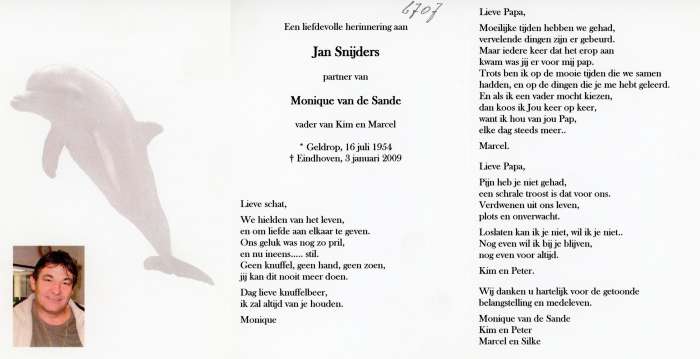 6707
Een liefdevolle herinnering aan
Jan Snijders
partner van
Monique van de Sande
vader van Kim en Marcel
* Geldrop, 16 juli 1954
† Eindhoven, 3 januari 2009
Lieve schat,
We hielden van het leven,
en om liefde aan elkaar te geven.
Ons geluk was nog zo pril,
en nu ineens..... stil.
Geen knuffel, geen hand, geen zoen,
jij kan dit nooit meer doen.
Dag lieve knuffelbeer,
ik zal altijd van je houden.
Monique
Lieve Papa,
Moeilijke tijden hebben we gehad,
vervelende dingen zijn er gebeurd.
Maar iedere keer dat het erop aan
kwam was jij er voor mij pap.
Trots ben ik op de mooie tijden die we samen
hadden, en op de dingen die je me hebt geleerd.
En als ik een vader mocht kiezen,
dan koos ik Jou keer op keer,
want ik hou van jou Pap,
elke dag steeds meer..
Marcel.
Lieve Papa,
Pijn heb je niet gehad,
een schrale troost is dat voor ons.
Verdwenen uit ons leven,
plots en onverwacht.
Loslaten kan ik je niet, wil ik je niet..
Nog even wil ik bij je blijven,
nog even voor altijd.
Kim en Peter.
Wij danken u hartelijk voor de getoonde
belangstelling en medeleven.
Monique van de Sande
Kim en Peter
Marcel en Silke